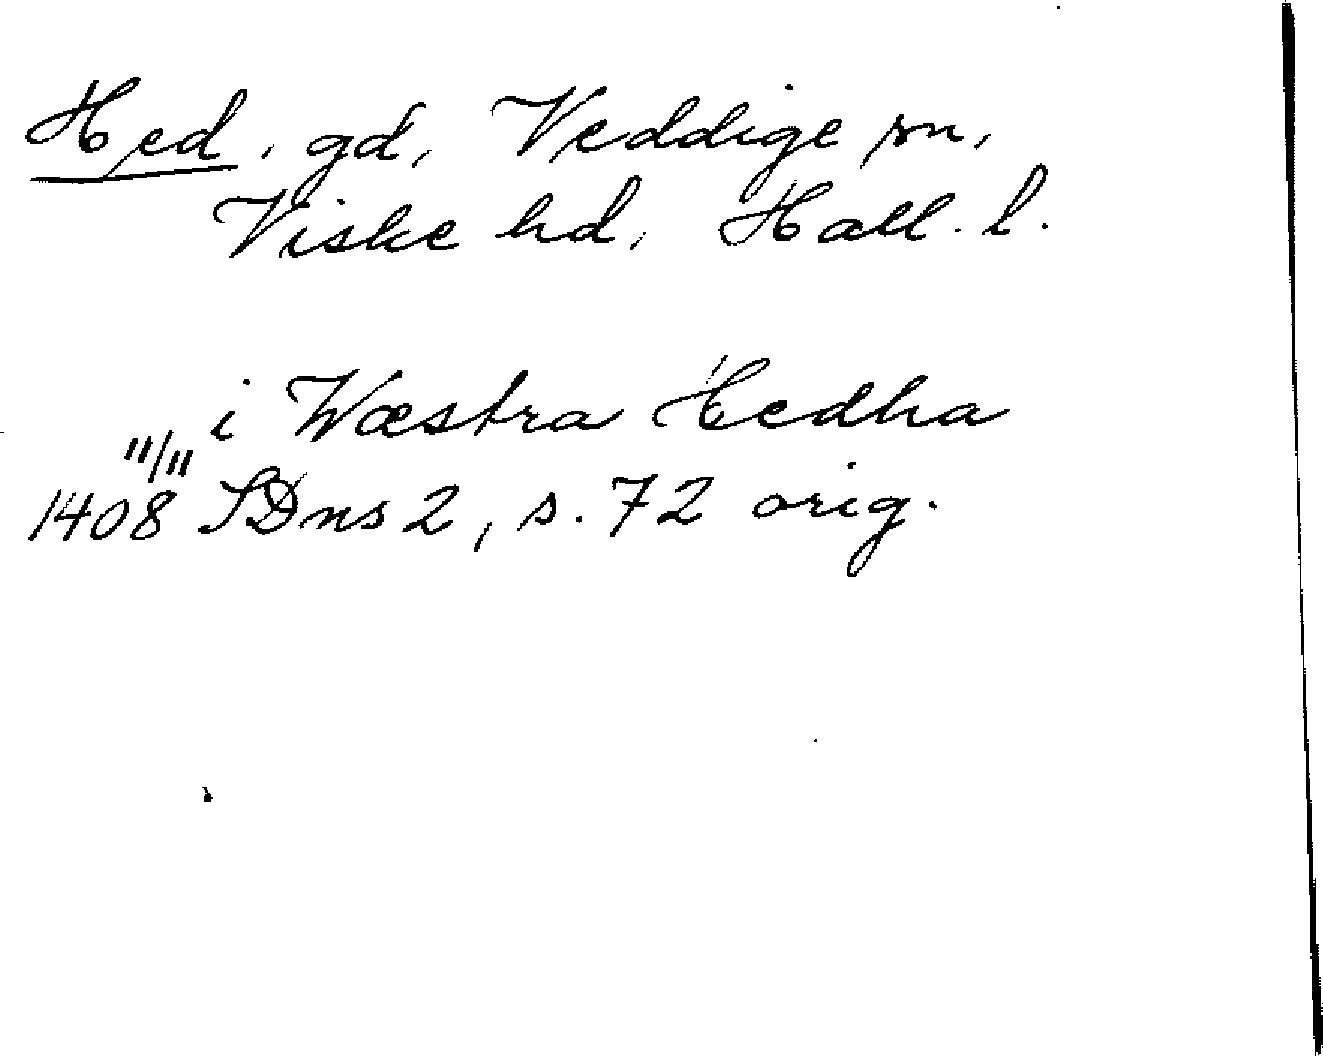 Hed, gd, Veddige sn,
Viske hd, Hall. l.
i Wæstra Hedha
11/11
1408 SDns 2, s. 72 orig.